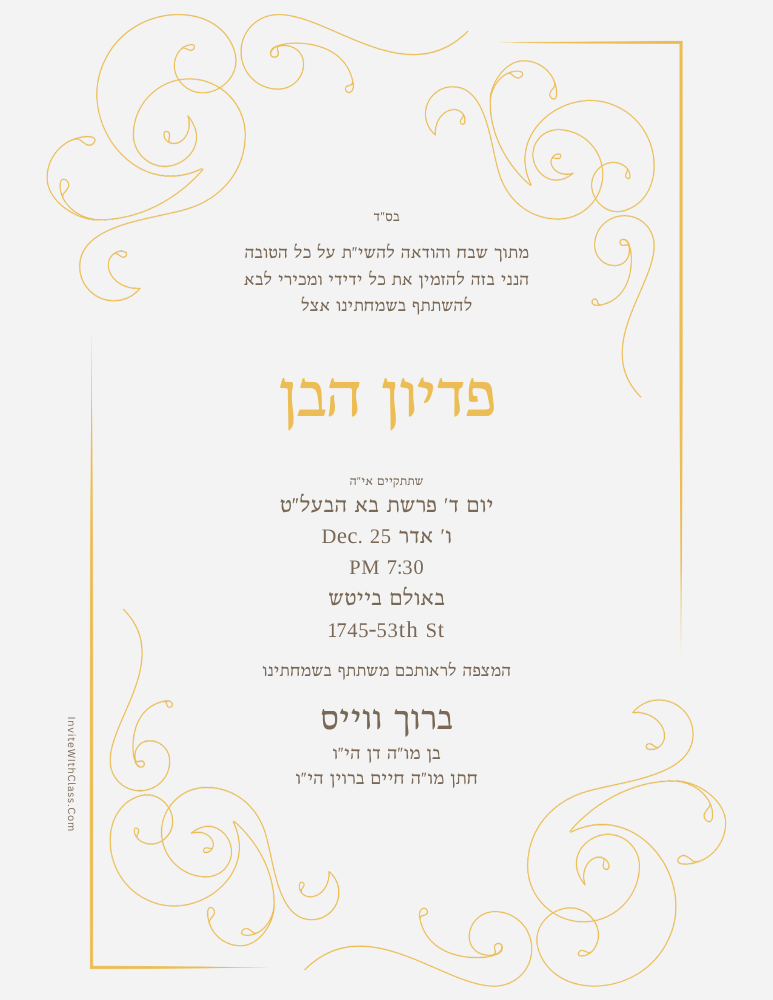 בס"ד
מתוך שבח והודאה להשי"ת על כל הטובה
הנני בזה להזמין את כל ידידי ומכירי לבא
להשתתף בשמחתינו אצל
פדיון הבן
שתתקיים אי"ה
יום ד' פרשת בא הבעל"ט
ו' אדר Dec. 25
PM 7:30
באולם בייטש
1745-53th St
המצפה לראותכם משתתף בשמחתינו
ברוך ווייס
בן מו"ה דן הי"ו
חתן מו"ה חיים ברוין הי"ו
InviteWithClass.Com